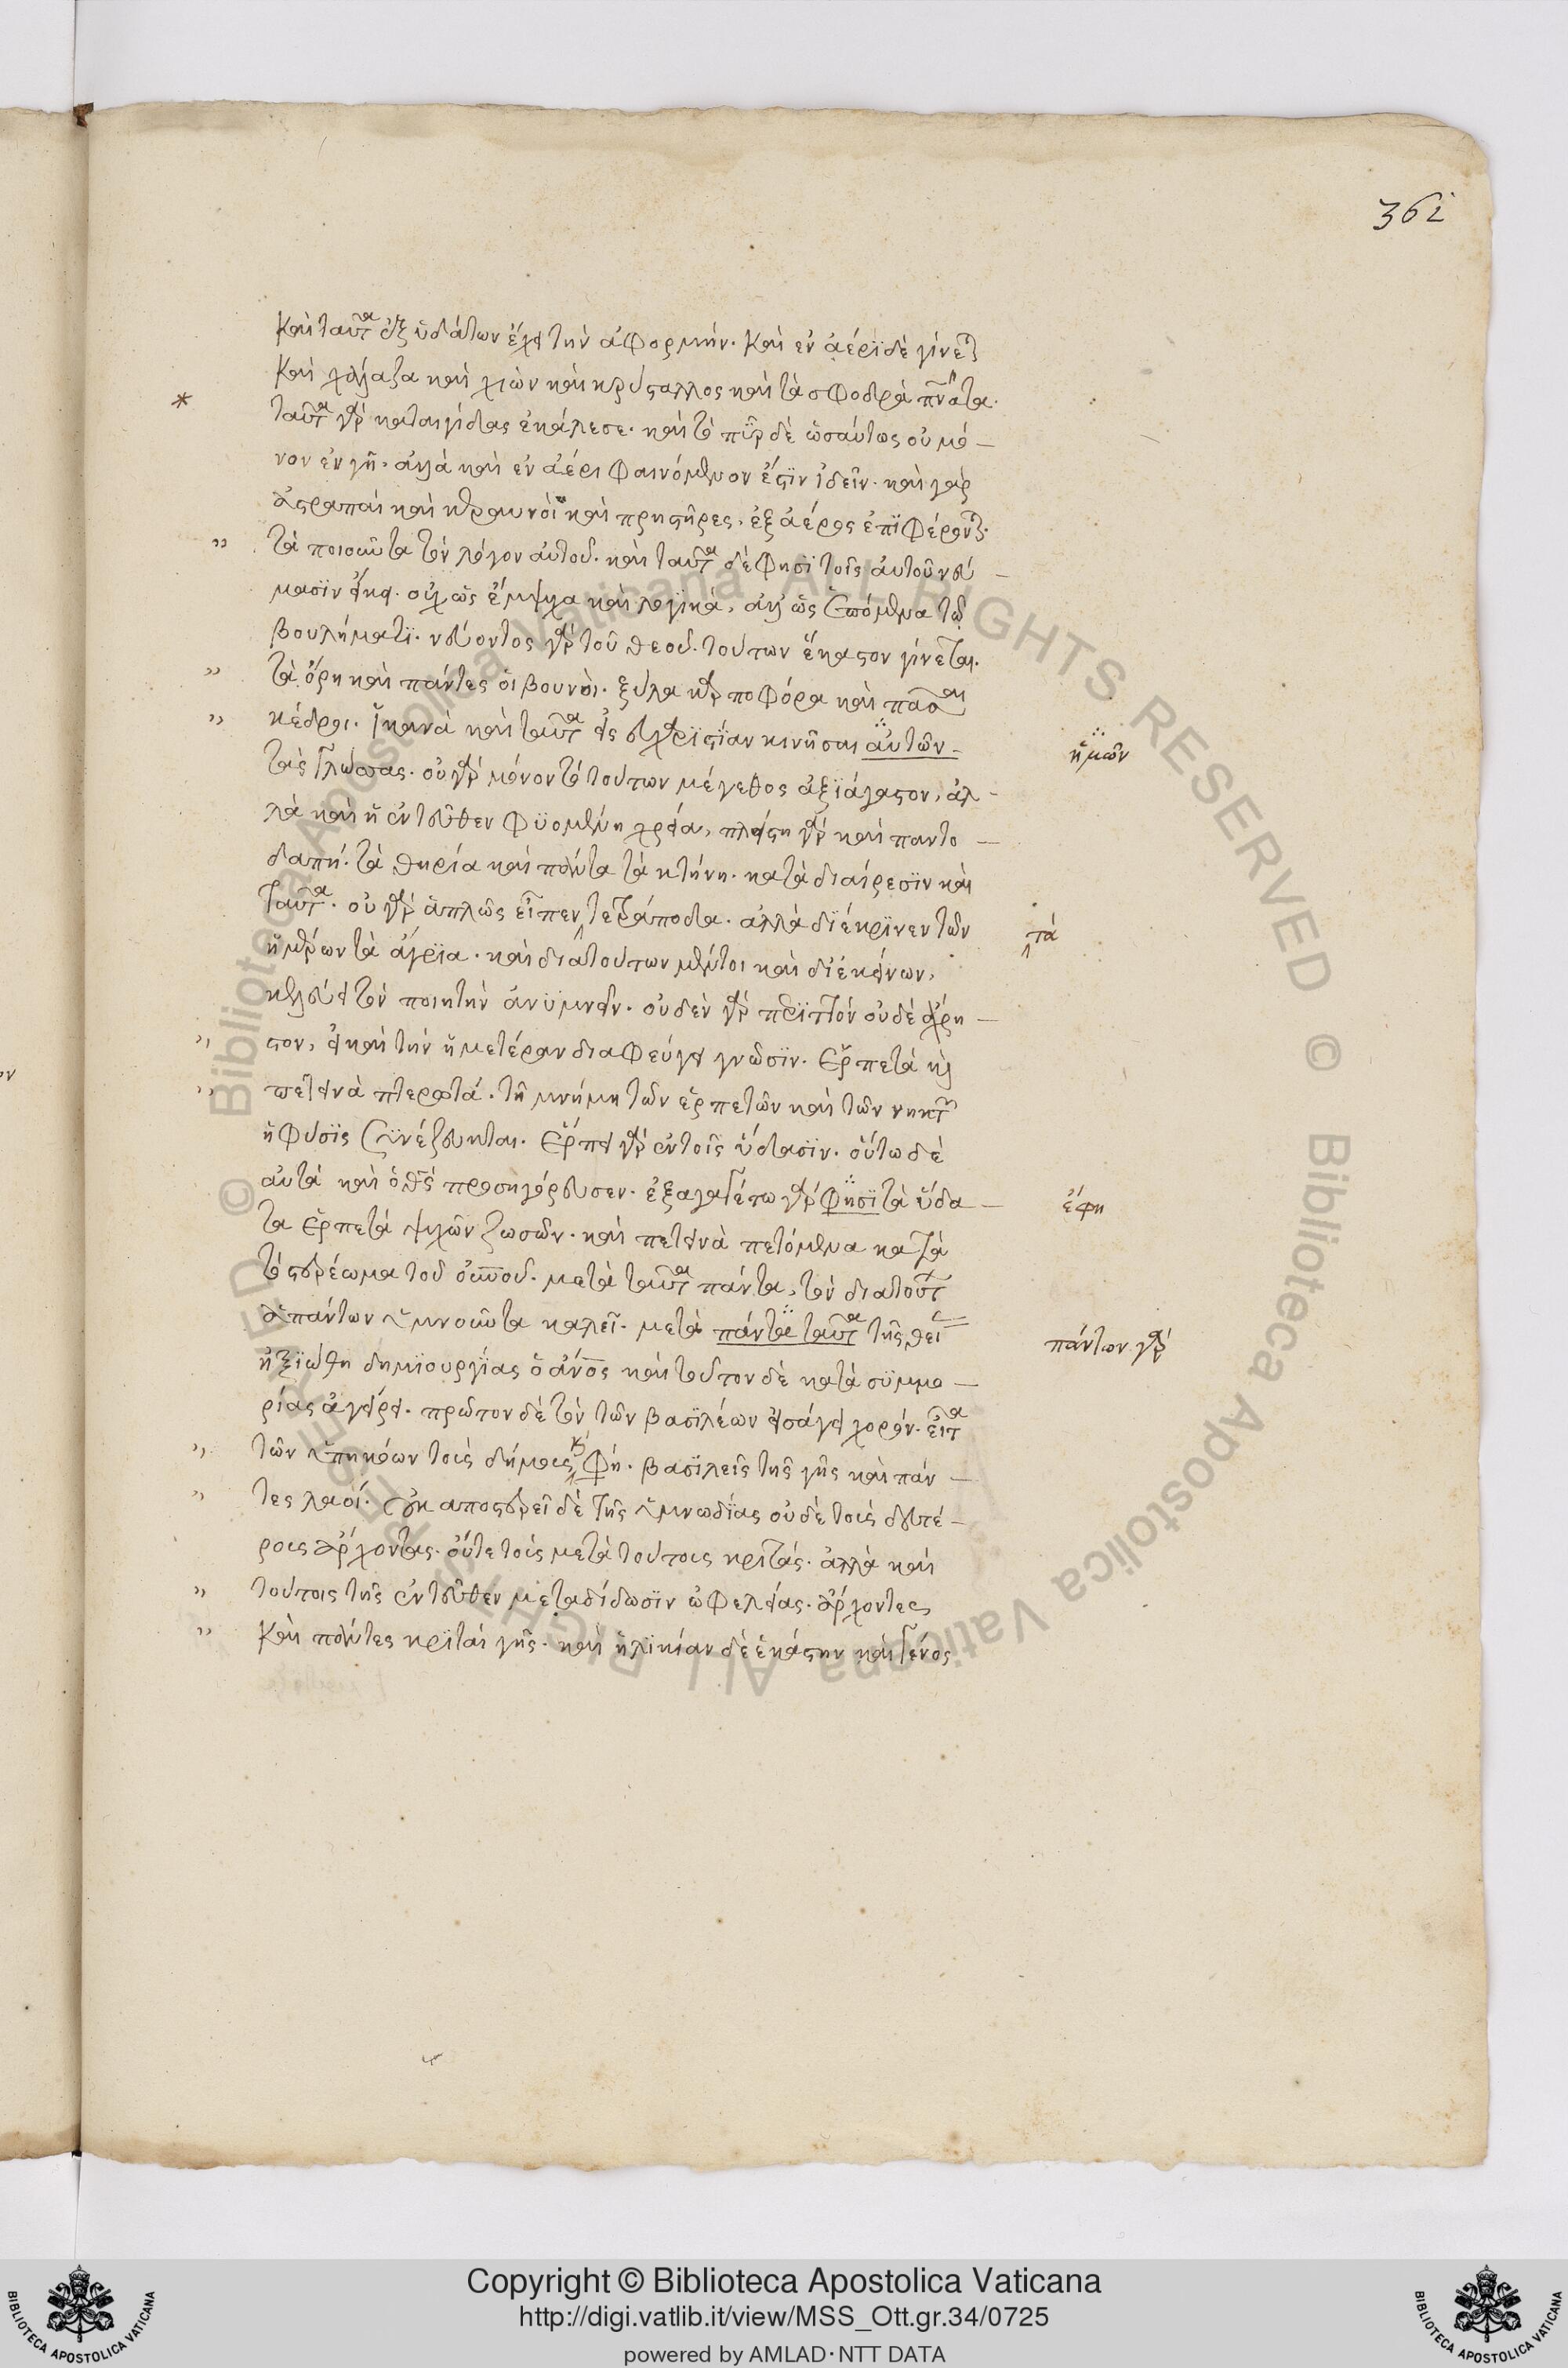 362
καὶ ταῦτα ἐξ ὑδάτων ἔχει τὴν ἀφορμήν. καὶ ἐν ἀέρϊ δὲ γίνεται
καὶ χάλαζα καὶ χιὼν καὶ κρύσταλλος καὶ τὰ σφοδρὰ πν̅ατα.
ταῦτα γὰρ καταιγίδας ἐκάλεσε. καὶ τὸ πῦρ δὲ ὡσαύτως οὐ μό –
νον ἐν γῆ. ἀλλὰ καὶ ἐν ἀέρι φαινόμενον ἔστϊν ἰδεῖν. καὶ γὰρ
ἀστραπαὶ καὶ κεραυνοὶ καὶ πρηστῆρες, ἐξ ἀέρος ἐπϊφέρονται.
τὰ ποιοῦντα τὸν λόγον αὐτοῦ. καὶ ταῦτα δέ φησϊ τοῖς αὐτοῦ νεύ –
μασϊν εἴκει. οὐχ ὡς ἔμψυχα καὶ λογϊκὰ, ἀλλ' ὡς ἑπόμενα τῷ
βουλήματϊ. νεύοντος γὰρ τοῦ θεοῦ. τούτων ἕκαστον γίνεται.
τὰ ὄρη καὶ πάντες οἱ βουνοὶ. ξύλα καρποφόρα καὶ πᾶσαι
κέδροι. ἱκανὰ καὶ ταῦτα εἰς εὐχαρϊστϊαν κινῆσαι αὐτῶν –
ἡμῶν
τὰς γλώσσας. οὐ γὰρ μόνον τὸ τούτων μέγεθος ἀξϊάγαστον, ἀλ –
λὰ καὶ ἡ ἐντεῦθεν φϋομένη χρεία, πλείστη γὰρ καὶ παντο –
δαπή. τὰ θηρία καὶ πάντα τὰ κτήνη. κατὰ διαίρεσϊν καὶ
ταῦτα. οὐ γὰρ ἁπλῶς εἶπεν τετράποδα. ἀλλὰ δϊέκρϊνεν τῶν
τὰ
ἡμέρων τὰ ἄγρϊα. καὶ διὰ τούτων μέντοι καὶ δϊ ἐκείνων,
κελεύει τὸν ποιητὴν ἀνϋμνεῖν. οὐδὲν γὰρ περϊττὸν οὐδὲ ἄχρη –
στον, εἰ καὶ τὴν ἡμετέραν διαφεύγει γνῶσϊν. ἑρπετὰ καὶ
πετεινὰ πτερωτά. τῆ μνήμη τῶν ἑρπετῶν καὶ τῶν νηκτῶν
ἡ φύσϊς συνέζευκται. ἕρπει γὰρ ἐν τοῖς ὕδασϊν. οὕτω δὲ
αὐτὰ καὶ ὁ θ̅ς προσηγόρευσεν. ἐξαγαγέτω γὰρ φησϊ τὰ ὕδα –
ἔφη
τα ἑρπετὰ ψυχῶν ζωσῶν. καὶ πετεινὰ πετόμενα κατὰ
τὸ στερέωμα τοῦ οὐ̅νοῦ. μετὰ ταῦτα πάντα, τὸν διὰ τούτων
ἁπάντων ὑμνοῦντα καλεῖ. μετὰ πάντα ταῦτα τῆς θεί
πάντων γὰρ
ἠξϊώθη δημϊουργΐας ὁ ἄν̅ος καὶ τοῦτον δὲ κατὰ συμμο –
ρίας ἀγείρει. πρῶτον δὲ τὸν τῶν βασϊλέων εἰσάγει χορόν. εἶτα
τῶν ὑπηκόων τοὺς δήμους καὶ φη. βασϊλεῖς τῆς γῆς καὶ πάν –
τες λαοί. οὐκ αποστερεῖ δὲ τῆς ὑμνωδίας οὐδὲ τοὺς δευτέ –
ρους ἄρχοντας. οὔτε τοὺς μετὰ τούτοις κριτάς. ἀλλὰ καὶ
τούτοις τῆς ἐντεῦθεν μεταδίδωσϊν ὠφελείας. ἄρχοντες
καὶ πάντες κρϊταὶ γῆς. καὶ ἡλϊκίαν δὲ ἑκάστην καὶ γένος
Copyright © Biblioteca Apostolica Vaticana
http://digi.vatlib.it/view/MSS_Ott.gr.34/0725
powered by AMLAD·NTT DATA